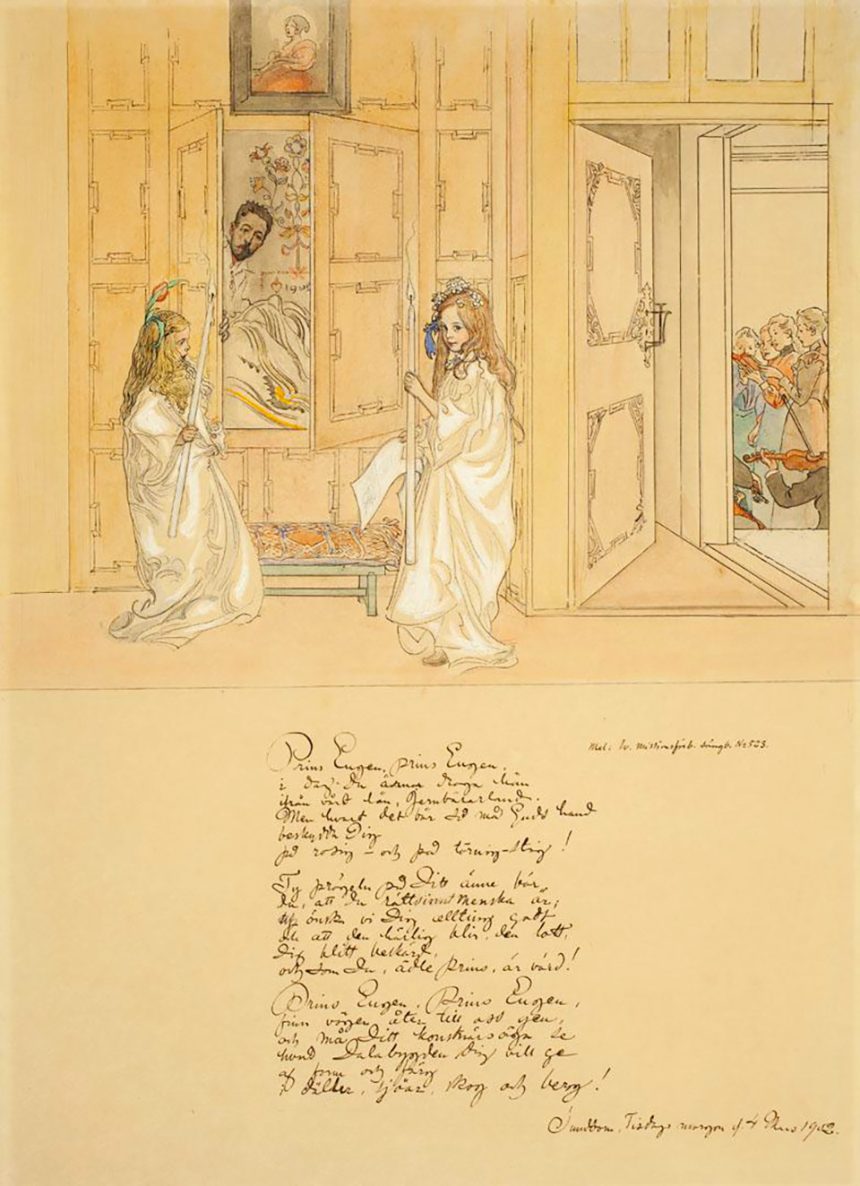 Mel. Sv. Missionsförb. Sångb. Nr 523.
Prins Eugen, Prins Eugen,
i dag Du ärnar draga hän
ifrån vårt län, Jernbärarland.
Men hvart det bär så må Guds hand
beskydda Dig
på rosig - och på törnig-stig!
Ty prägeln på Ditt änne bär
du, att du rättsinnt menska är;
önska vi Dig allting godt
och att den härlig blir, den lott,
Dig blitt beskärd,
och som Du, ädle Prins, är värd!
Prins Eugen, Prins Eugen,
finn vägen åter till oss gen,
och må Ditt konstnärsöga se
hvad Dalabygden Dig vill ge
af form och färg
i dälder, sjöar, skog och berg!
Sundborn, Tisdags morgon d. 4 Mars 1902.